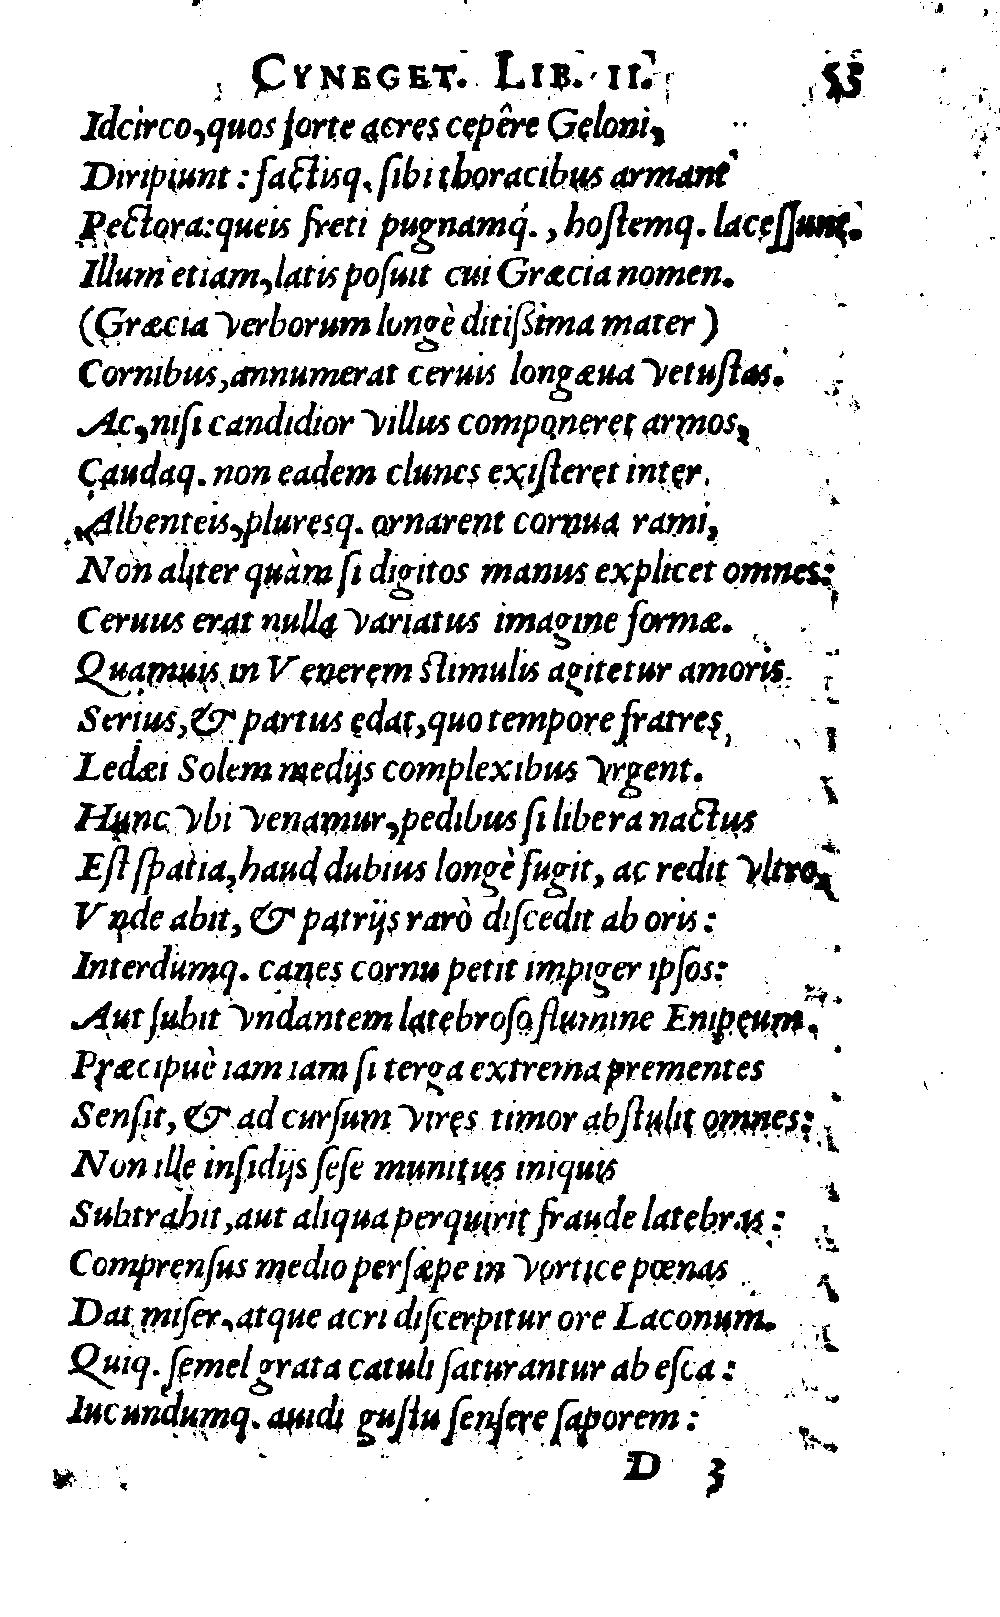 CYNEGET. LIB. II. 55
Idcirco, quos forte acres cepêre Geloni,
Diripiunt: factisq. sibi thoracibus armant
Pectora: queis freti pugnamq́., hostemq. lacessunt.
Illum etiam, latis posuit cui Græcia nomen.
(Græcia verborum longè ditissima mater)
Cornibus, annumerat ceruis longæua vetustas.
Ac, nisi candidior villus componeret armos,
Caudaq. non eadem clunes existeret inter
Albenteis, pluresq. ornarent cornua rami,
Non aliter quàm si digitos manus explicet omnes:
Ceruus erat nulla variatus imagine formæ.
Quamuis in Venerem stimulis agitetur amoris
Serius, & partus edat, quo tempore fratres,
Ledæi Solem medijs complexibus vrgent.
Hunc vbi venamur, pedibus si libera nactus
Est spatia, haud dubius longè fugit, ac redit vltro,
Vnde abit, & patrijs rarò discedit ab oris:
Interdumq. canes cornu petit impiger ipsos:
Aut subit vndantem latebroso flumine Enipeum.
Præcipuè iam iam si terga extrema prementes
Sensit, & ad cursum vires timor abstulit omnes:
Non ille insidijs sese munitus iniquis
Subtrahit, aut aliqua perquirit fraude latebras:
Comprensus medio persæpe in vortice pœnas
Dat miser, atque acri discerpitur ore Laconum.
Quiq. semel grata catuli saturantur ab esca:
Iucundumq. auidi gustu sensere saporem:
D 3